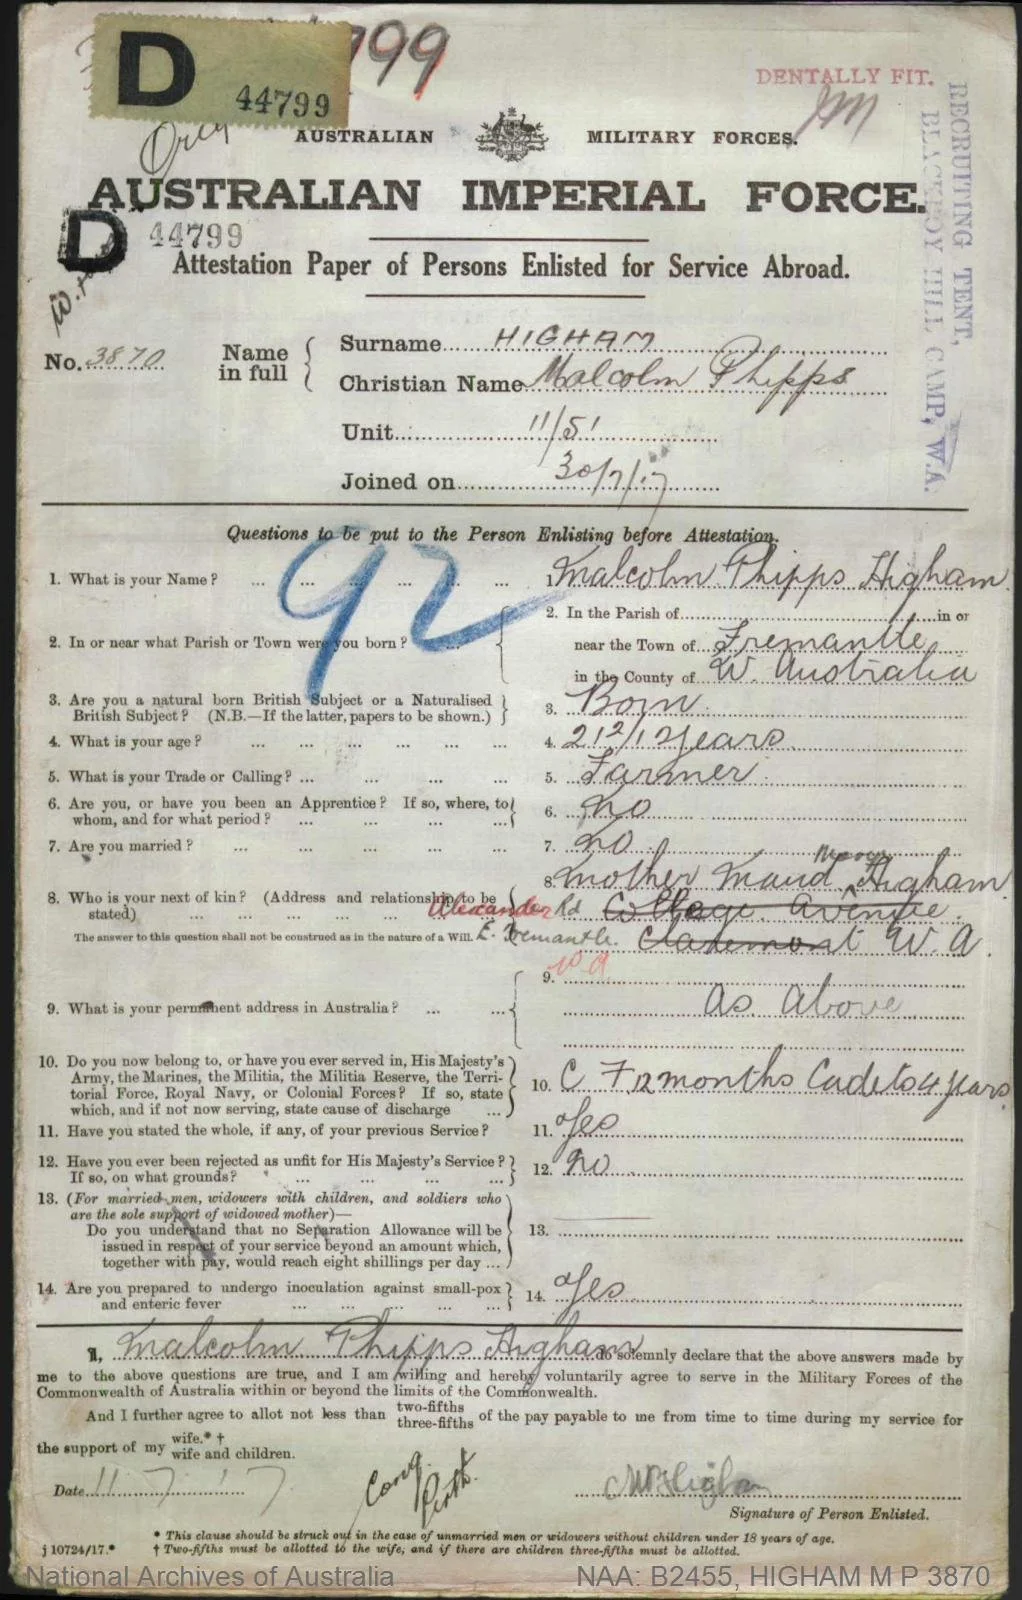 799
D 44799
DENTALLY FIT.
Orig
AUSTRALIAN MILITARY FORCES.
RECRUITING TENT,
BLACKBOY HILL CAMP, W.A.
AUSTRALIAN IMPERIAL FORCE.
D 44799
Attestation Paper of Persons Enlisted for Service Abroad.
No. 3870 Name in full Surname HIGHAM
Christian Name Malcolm Phipps
Unit 11/51
Joined on 30/7/17
Questions to be put to the Person Enlisting before Attestation.
92
1. What is your Name? ... 1. Malcolm Phipps Higham
2. In or near what Parish or Town were you born? ... 2. In the Parish of in or
near the Town of Fremantle
in the County of W. Australia
3. Are you a natural born British Subject or a Naturalised
British Subject? (N.B.—If the latter, papers to be shown.) 3. Born
4. What is your age? ... 4. 21 2/12 years
5. What is your Trade or Calling? ... 5. Farmer
6. Are you, or have you been an Apprentice? If so, where, to
whom, and for what period? ... 6. No
7. Are you married? ... 7. No
8. Who is your next of kin? (Address and relationship to be
stated) ... 8. Mother Maud Higham
Alexander Rd College Avenue
The answer to this question shall not be construed as in the nature of a Will. E. Fremantle. Claremont W. A
W A
9. What is your permanent address in Australia? ... 9. As Above
10. Do you now belong to, or have you ever served in, His Majesty's
Army, the Marines, the Militia, the Militia Reserve, the Terri-
torial Force, Royal Navy, or Colonial Forces? If so, state
which, and if not now serving, state cause of discharge ... 10. C. F. 12 months Cadets 4 years
11. Have you stated the whole, if any, of your previous Service? 11. Yes
12. Have you ever been rejected as unfit for His Majesty's Service?
If so, on what grounds? ... 12. No
13. (For married men, widowers with children, and soldiers who
are the sole support of widowed mother)—
Do you understand that no Separation Allowance will be
issued in respect of your service beyond an amount which,
together with pay, would reach eight shillings per day ... 13.
14. Are you prepared to undergo inoculation against small-pox
and enteric fever ... 14. Yes
I, Malcolm Phipps Higham do solemnly declare that the above answers made by
me to the above questions are true, and I am willing and hereby voluntarily agree to serve in the Military Forces of the
Commonwealth of Australia within or beyond the limits of the Commonwealth.
And I further agree to allot not less than two-fifths three-fifths of the pay payable to me from time to time during my service for
the support of my wife.* † wife and children.
Date 11 . 7 . 17 .
Cong. Perth.
MP Higham
Signature of Person Enlisted.
* This clause should be struck out in the case of unmarried men or widowers without children under 18 years of age.
j 10724/17.* † Two-fifths must be allotted to the wife, and if there are children three-fifths must be allotted.
National Archives of Australia NAA: B2455, HIGHAM M P 3870